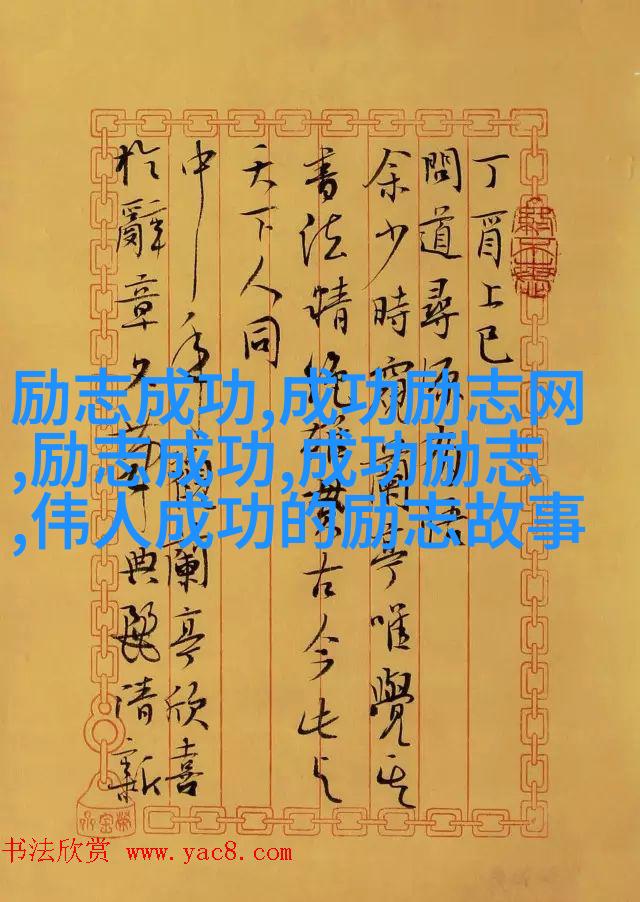 丁酉上巳
問道尋源有
余少時窺蘭亭唯覺其
書法精絕古今此與
天下人同
中年蘭亭欣喜
於辭章文典麗清新
励志成功,成功励志网
,励志成功,成功励志
,伟人成功的励志故事
书法欣赏 www.yac8.com